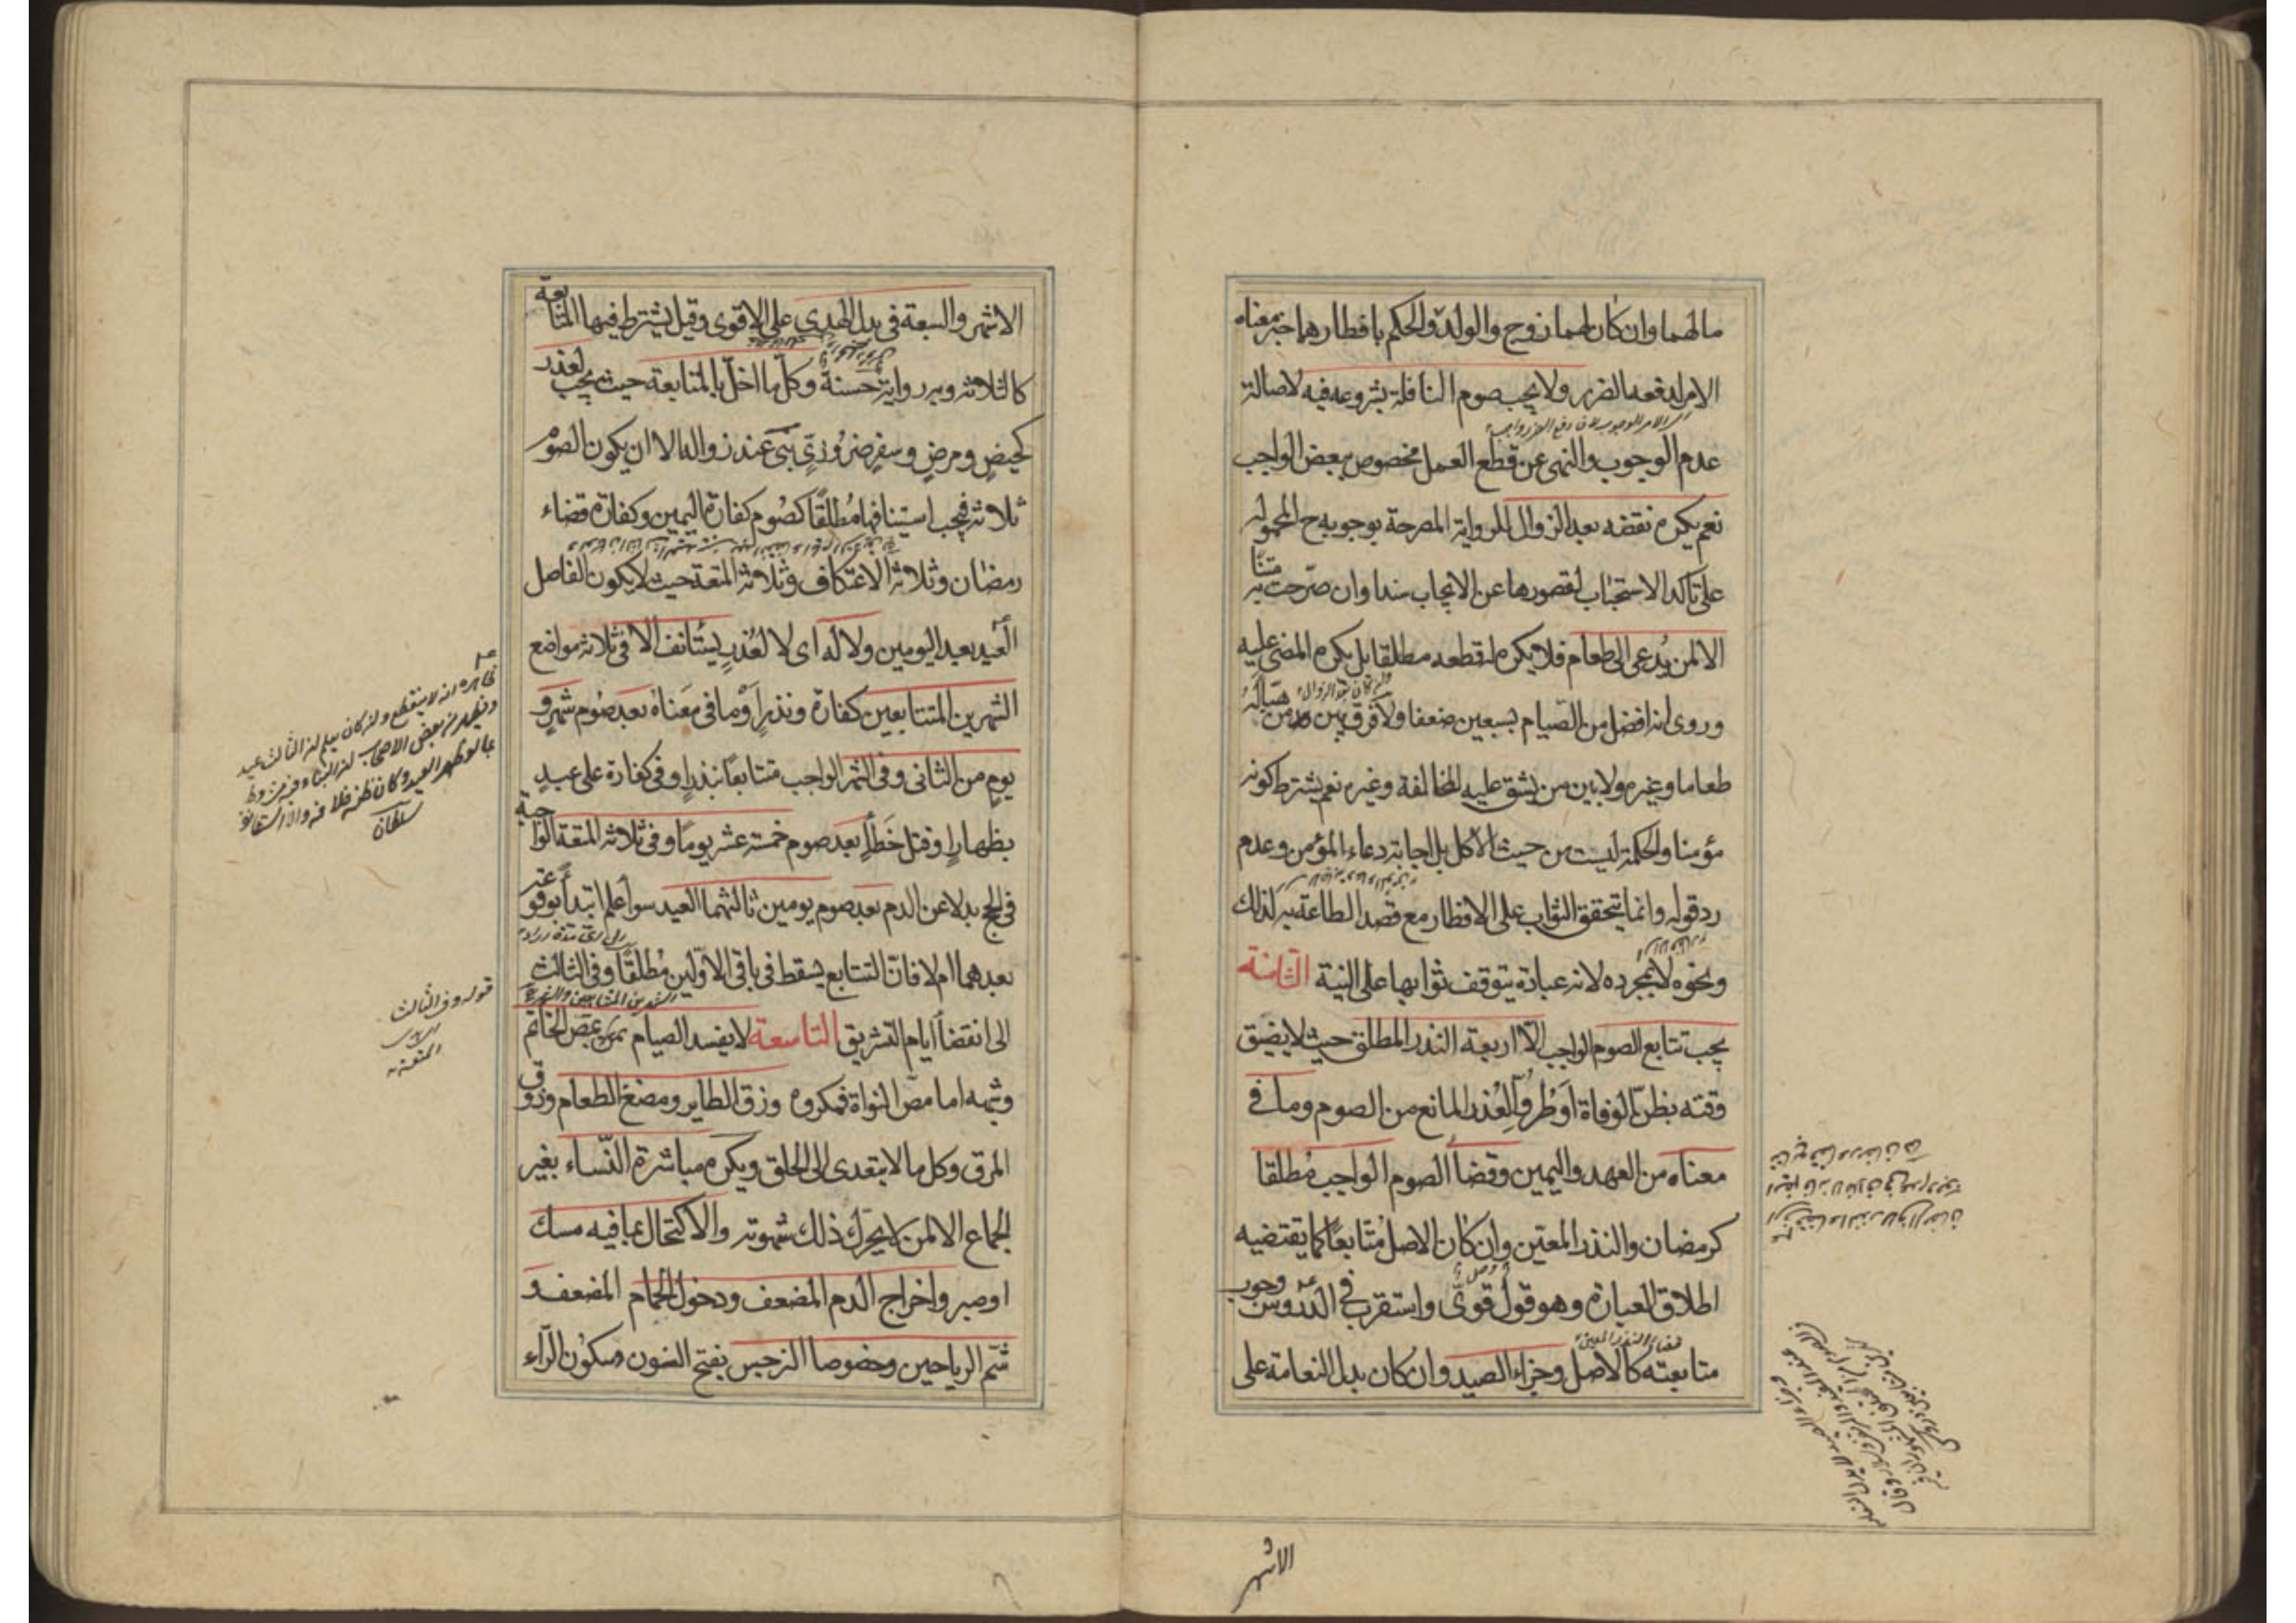 مالهما وان كان لهما زوج والولد والحكم بافطارهما خبر معناه
الامر لدفعه الضرر ولا يجب صوم النافلة بشروعه فيه لاصالة
عدم الوجوب والنهى عن قطع العمل مخصوص ببعض الواجب
نعم يكره نقضه بعد الزوال للرواية المصرحة بوجوبه ح المحمولة
على تاكد الاستحباب لقصورها عن الايجاب سندا وان صرحت به متنا
الا لمن يدعى الى طعام فلا يكره له قطعه مطلقا بل يكره المضى عليه
وروى انه افضل من الصيام بسبعين ضعفا ولا فرق بين من هيأ له
طعاما وغيره ولا بين من يشق عليه المخالفة وغيره نعم يشترط كونه
مؤمنا والحكمة ليست من حيث الاكل بل اجابة دعاء المؤمن وعدم
رد قوله وانما يتحقق الثواب على الافطار مع قصد الطاعة به لذلك
ونحوه لا بمجرده لانه عبادة يتوقف ثوابها على النية الثامنة
يجب تتابع الصوم الواجب الا اربعة النذر المطلق حيث لا يضيق
وقته بظن الوفاة او طرو العذر المانع من الصوم وما فى
معناه من العهد واليمين وقضاء الصوم الواجب مطلقا
كرمضان والنذر المعين وان كان الاصل متتابعا كما يقتضيه
اطلاق العبارة وهو قول قوى واستقرب فى الدروس وجوب
متابعته كالاصل وجزاء الصيد وان كان بدل النعامة على
الاشهر
الاشهر والسبعة فى بدل الهدى على الاقوى وقيل يشترط فيها المتابعة
كالثلاثة وبه رواية حسنة وكل ما اخل بالمتابعة حيث يجب لعذر
كحيض ومرض وسفر ضرورى بنى عند زواله الا ان يكون الصوم
ثلاثة فيجب استينافها مطلقا كصوم كفارة اليمين وكفارة قضاء
رمضان وثلاثة الاعتكاف وثلاثة المتعة حيث لا يكون الفاصل
العيد بعد اليومين ولا له اى لا لعذر يستأنف الا فى ثلاثة مواضع
الشهرين المتتابعين كفارة ونذرا وما فى معناه بعد صوم شهر و
يوم من الثانى وفى الشهر الواجب متتابعا بنذر او فى كفارة على عبد
بظهار او قتل خطأ بعد صوم خمسة عشر يوما وفى ثلاثة المتعة الواجبة
فى الحج بدلا عن الدم بعد صوم يومين ثالثهما العيد سواء علم ابتداء بوقوعه
بعدهما ام لا فان التتابع يسقط فى باقى الاولين مطلقا وفى الثالث
الى انقضاء ايام التشريق التاسعة لا يفسد الصيام بمص الخاتم
وشبهه اما مص النواة فمكروه وزق الطاير ومضغ الطعام وذوق
المرق وكل ما لا يتعدى الى الحلق ويكره مباشرة النساء بغير
الجماع الا لمن لا يحرك ذلك شهوته والاكتحال بما فيه مسك
او صبر واخراج الدم المضعف ودخول الحمام المضعف و
شم الرياحين وخصوصا النرجس بفتح النون وسكون الراء
ظاهره انه لا ينقطع وان كان يعلم ان الثالث عيد
سلطان
قوله وفى الثالث